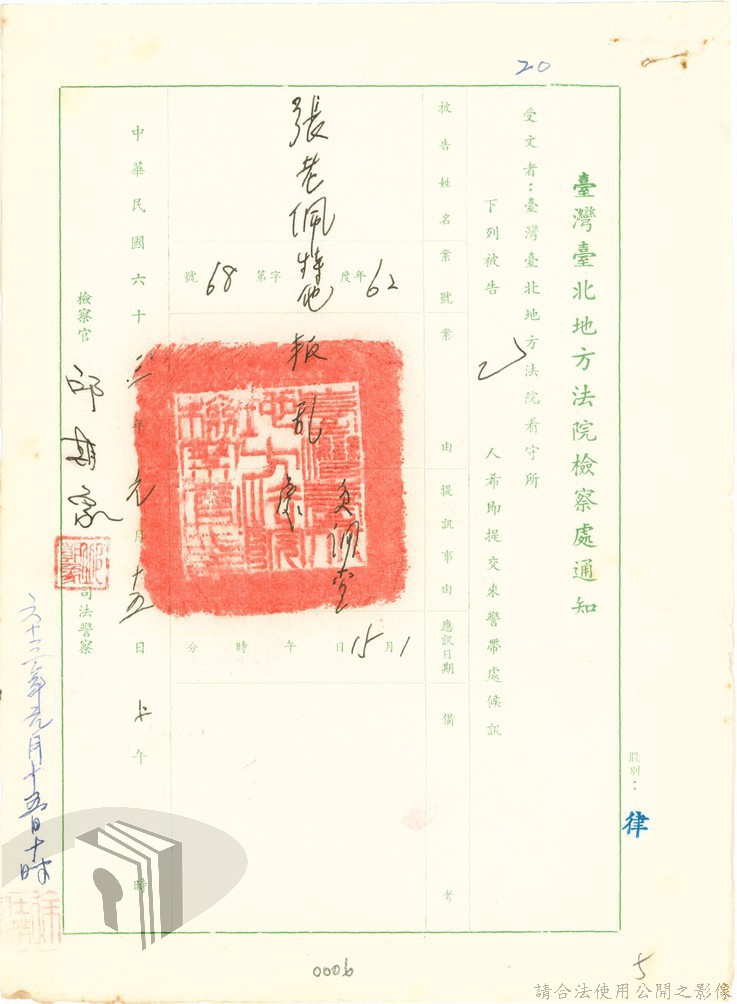 20
臺灣臺北地方法院檢察處通知
股別：
律
受文者：臺灣臺北地方法院看守所
下列被告
乙
人希即提交來警帶處候訊
被告姓名
案號
案由
提訊事由
應訊日期
備考
62年度
字第68號
叛乱
1月15日
午
時
分
中華民國六十三年元月十五日上午
時
檢察官
司法警察
六十三年元月十五日十時
0006
5
請合法使用公開之影像